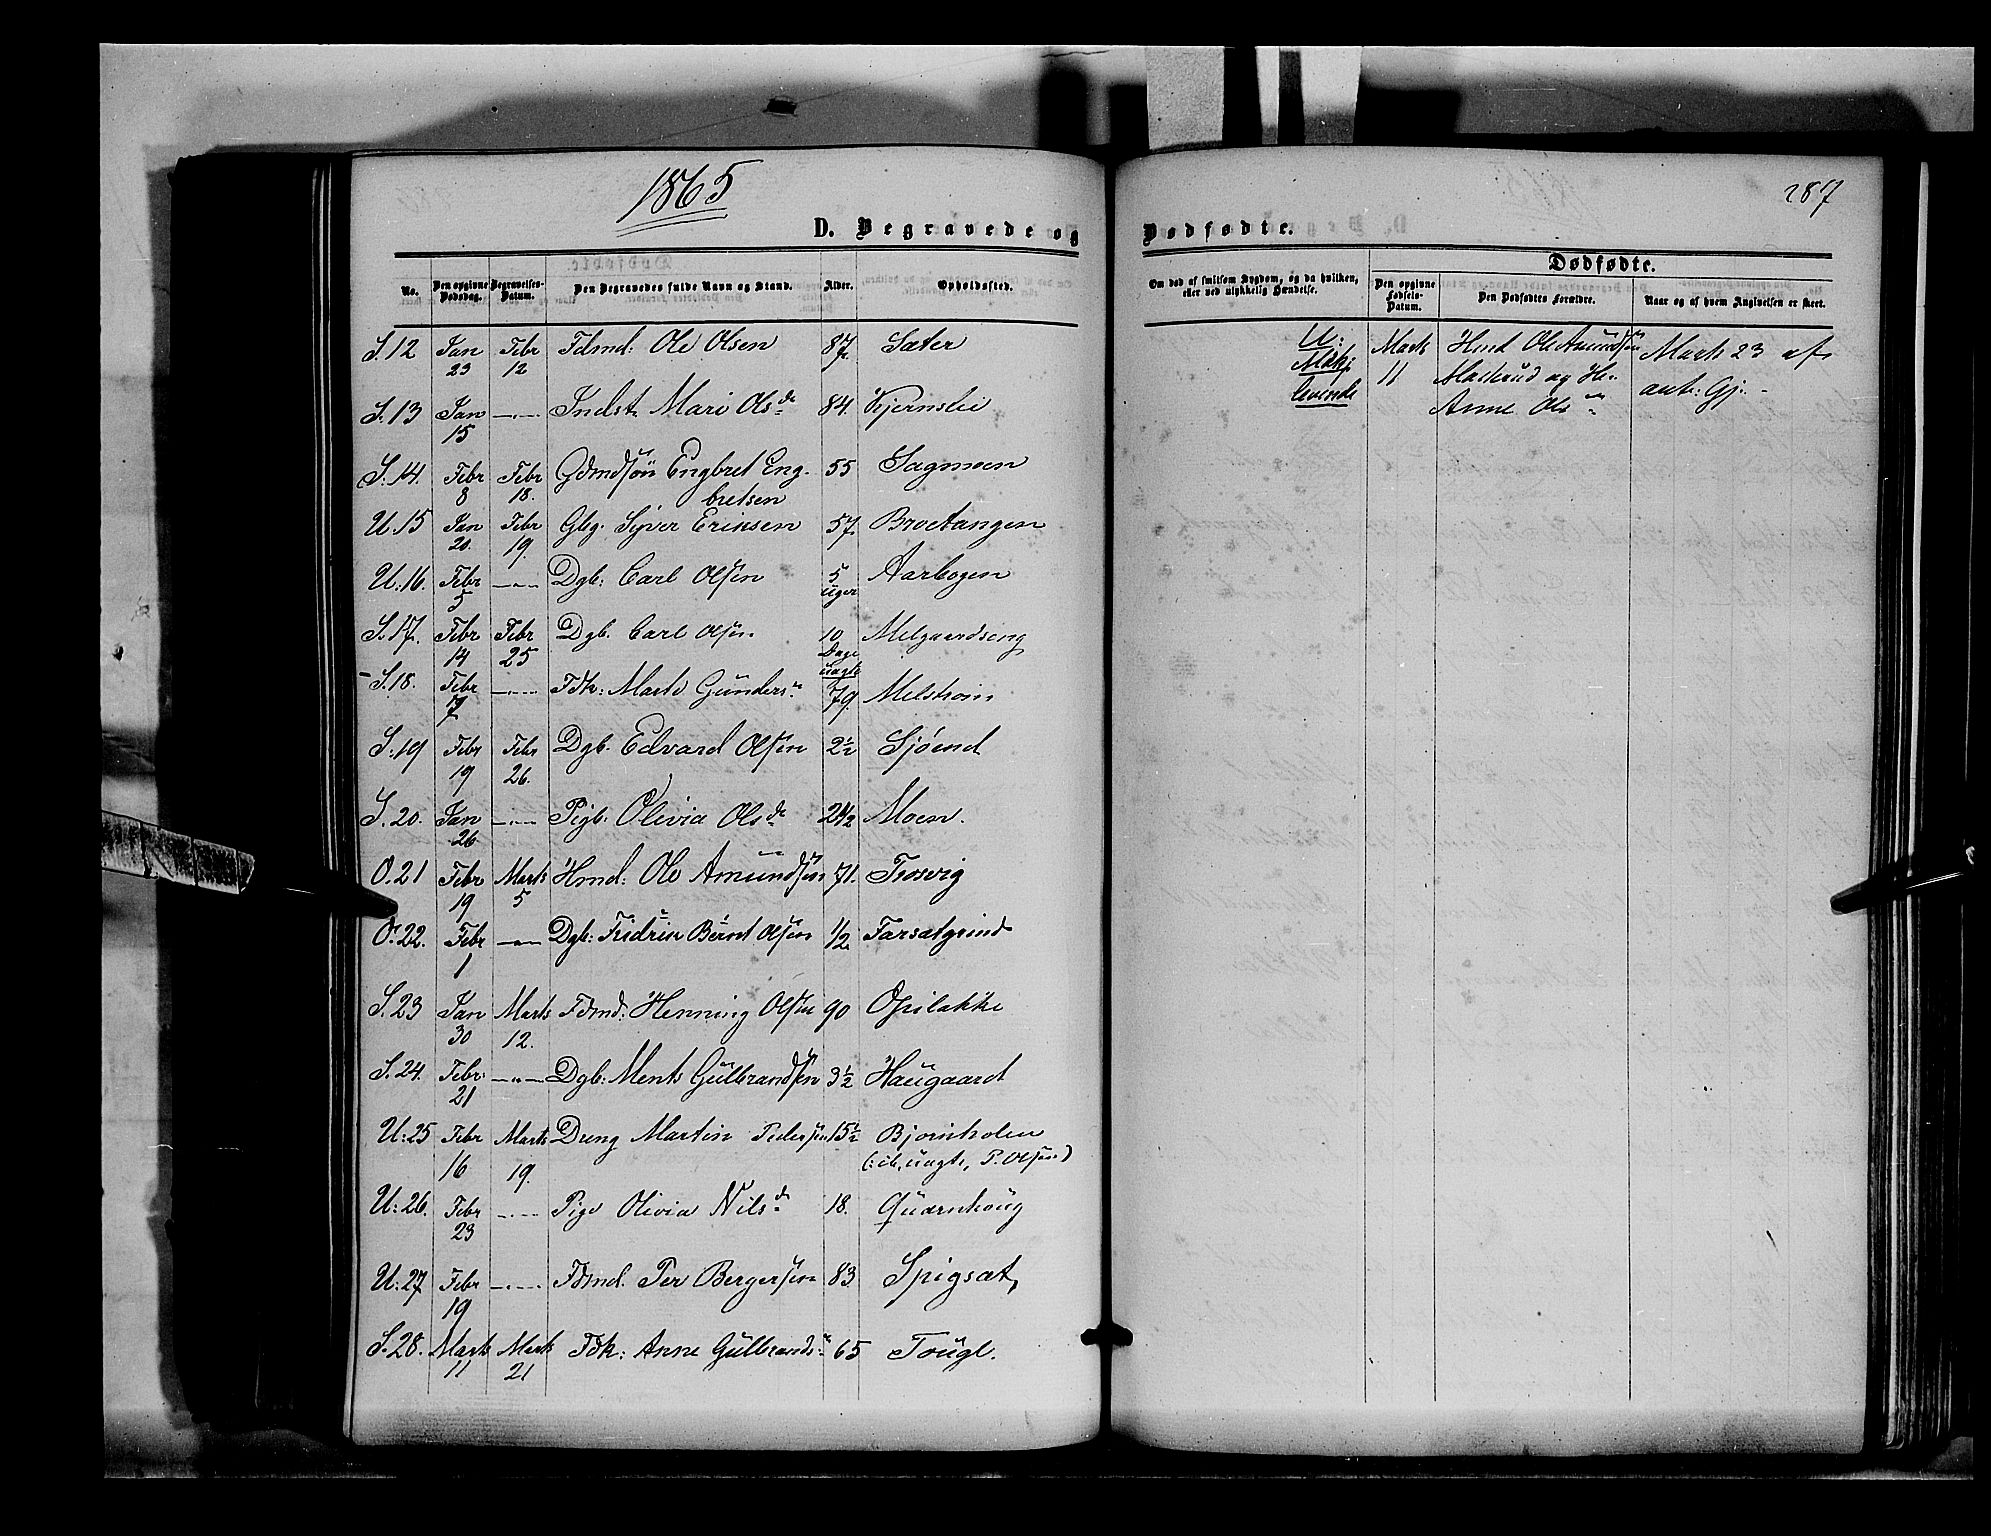 1865
287
D. Begravede og Dødfødte.
No. Den opgivne Dødsdag. Begravelses-Datum. Den Begravedes fulde Navn og Stand. Alder. Opholdssted.
Om død af smitsom Sygdom, og da hvilken, eller ved ulykkelig Hændelse.
Dødfødte.
Den opgivne Fødsels-Datum. Den Dødfødtes Forældre. Naar og af hvem Angivelsen er skeet.
S. 12 Jan 23 Febr 12 Fdmd: Ole Olsen 87 Sæter
S. 13 Jan 15 —„— Indst. Mari Olsdr 84. Kjernslie
S. 14. Febr 8 Febr 18. Gdmdsøn Engbret Eng-
bretsen 55 Sagmoen
U. 15 Jan 20. Febr 19. Gbg. Syver Eriksen 57. Broetangen
U. 16. Febr 5 —„— Dgb: Carl Olsen 5 Uger Aarbogen
S. 17. Febr 14 Febr 25 Dgb. Carl Olsen 10 Dage Melgaardseng
S. 18. Febr 7 —„— Fdk: Marte Gunders. uægte 79. Melstrøm
S. 19 Febr 19 Febr 26. Dgb. Edvard Olsen 2½ Sjøend
S. 20. Jan 26 —„— Pigb. Olivia Olsdr 2½ Moen.
O. 21 Febr 19 Marts 5 Hmd: Ole Amundsen 71. Trosvig
O. 22. Febr 1 —„— Dgb: Fredrik Bernt Olsen ½ Farsætgrind
S. 23 Jan 30 Marts 12. Fdmd: Henning Olsen 90 Opilakke
S. 24. Febr: 21 —„— Dgb: Ments Gulbrandsen 3½ Haugaard
U: 25 Febr 16 Marts 19. Dreng Martin Pedersen 15½ Bjørnholen
(: uægte, P. Olsen)
U: 26. Febr 23 —„— Pige Olivia Nilsdr 18. Quærnhoug
U: 27 Febr 19 —„— Fdmd. Per Bergersen 83 Spigsæt
S. 28. Marts 11 Marts 21 Fdk: Anne Gulbrands. 65 Tougl.
U:
levende
Marts 11
Hmd Ole Amundsen
og
Anne Ols
Marts 23 af